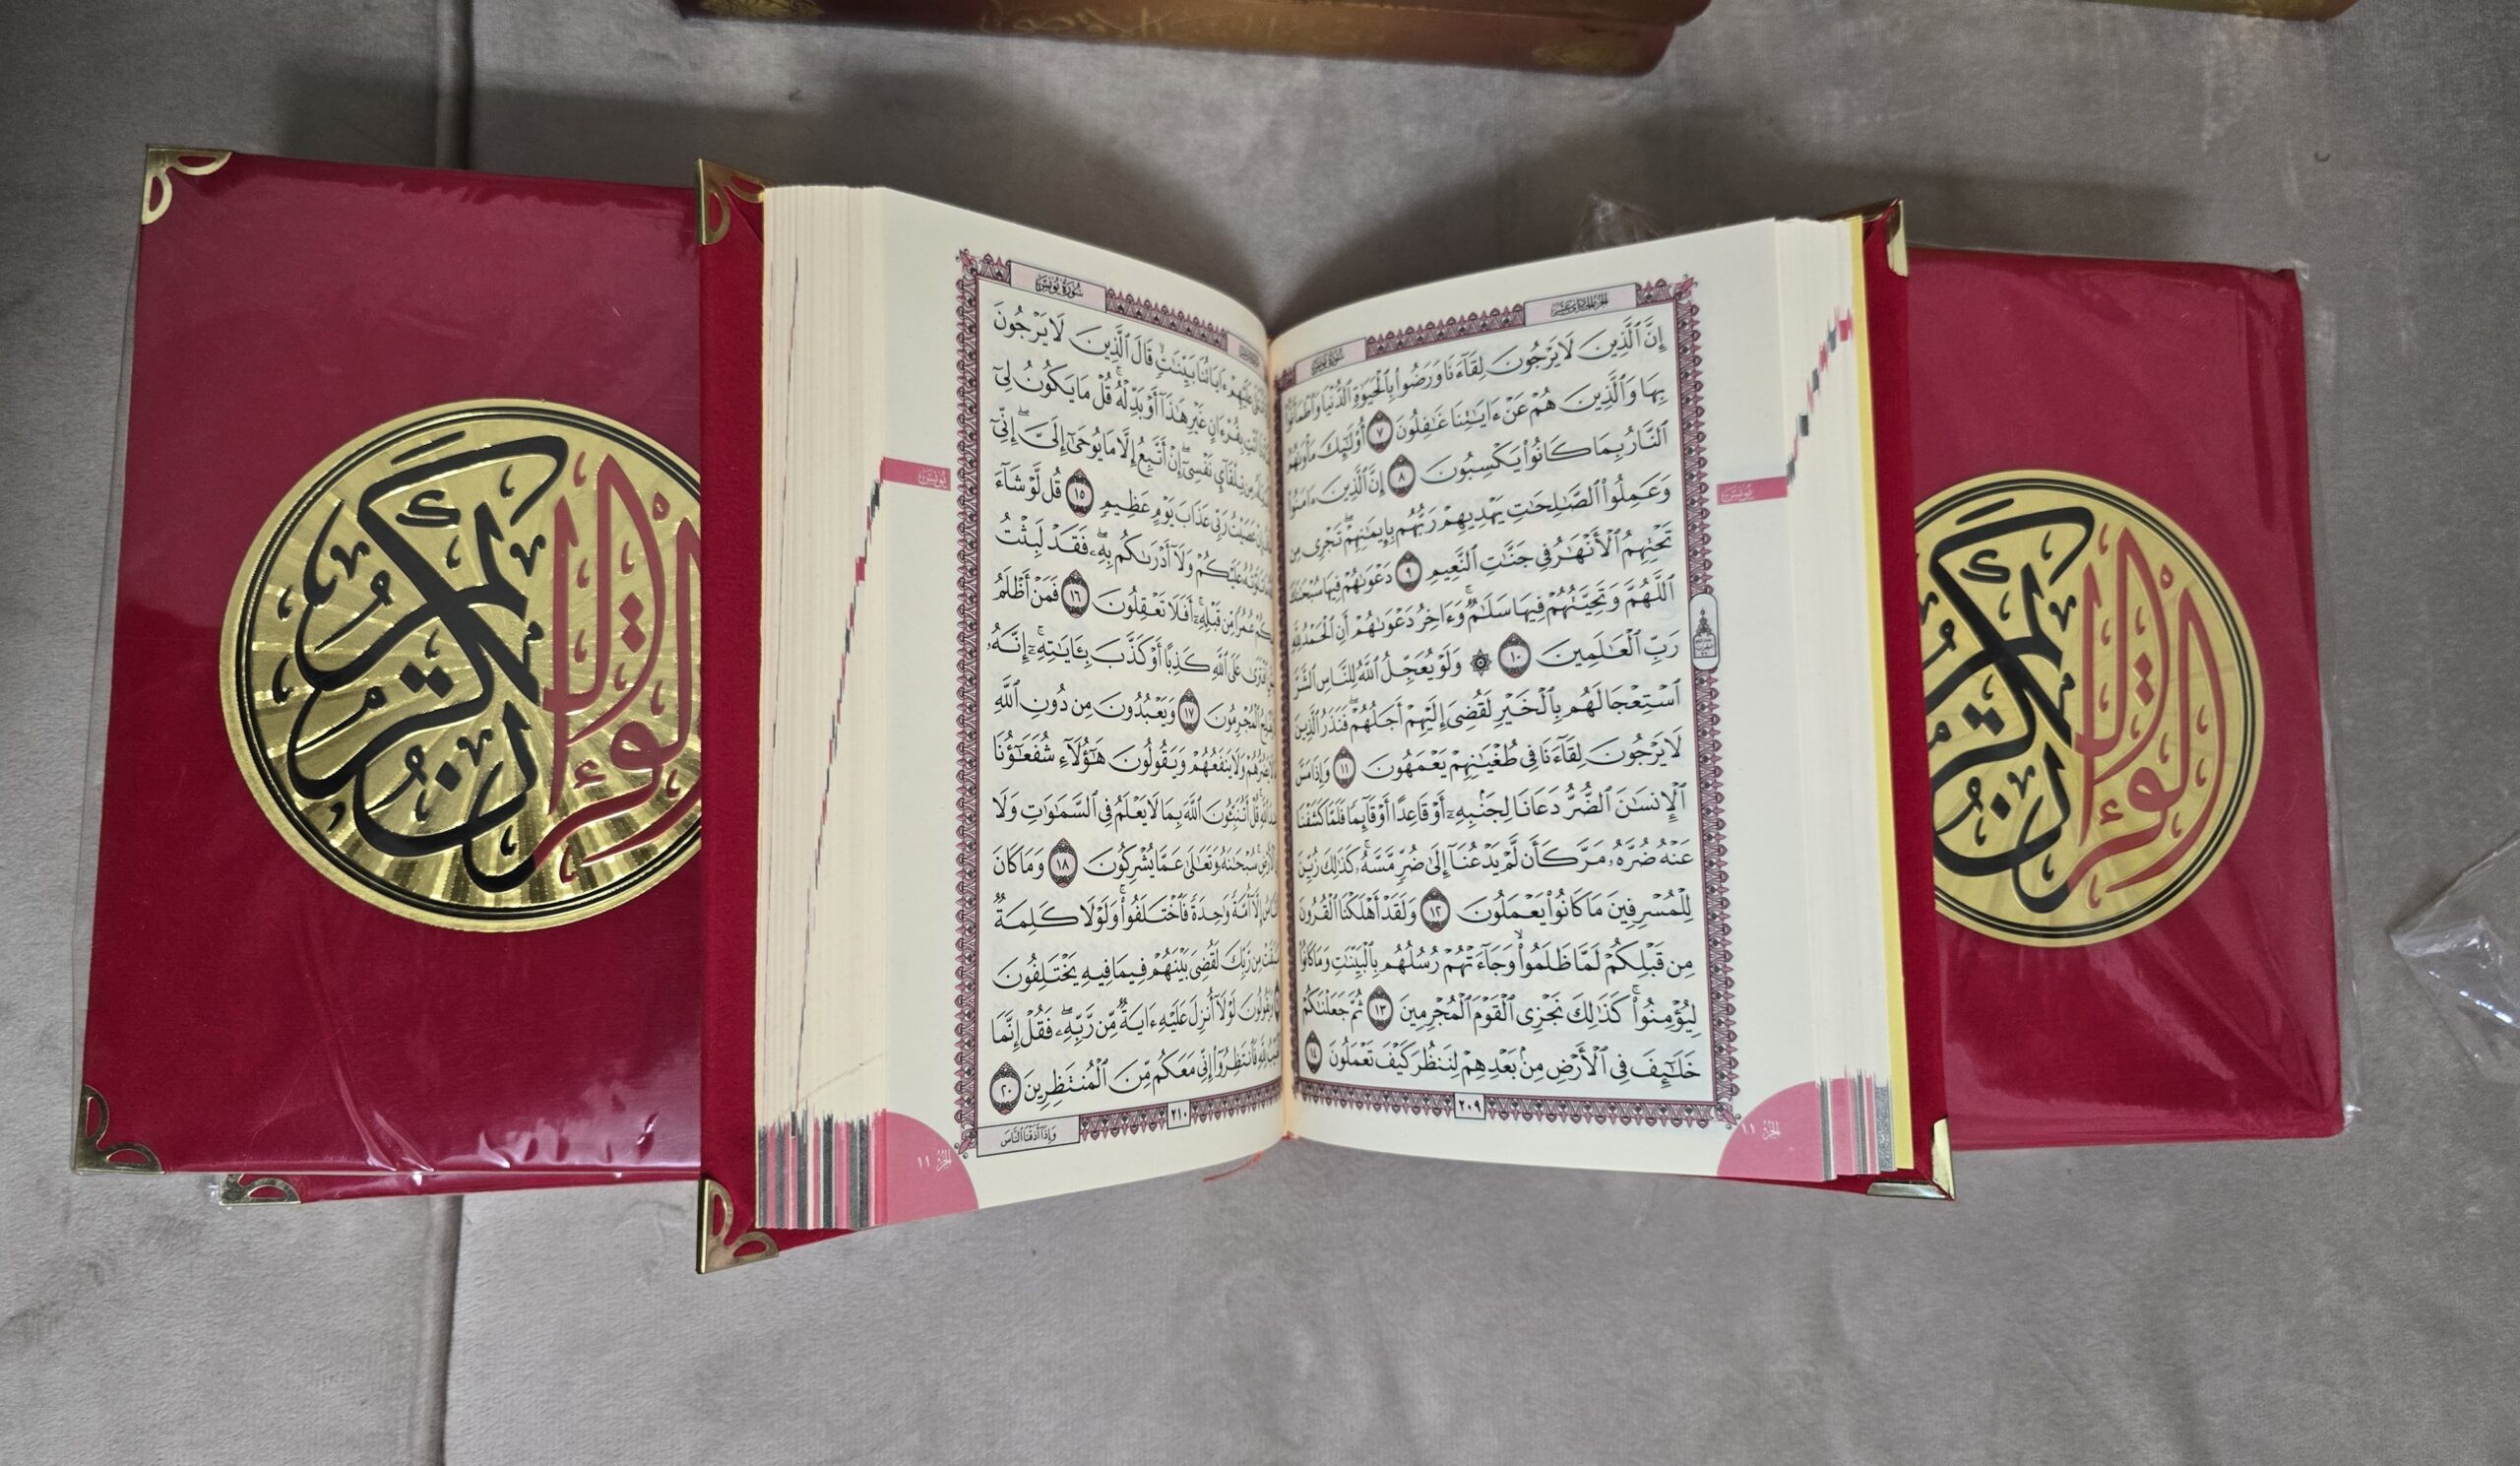 الجزء الحادي عشر
سورة يونس
إِنَّ ٱلَّذِينَ لَا يَرْجُونَ لِقَآءَنَا وَرَضُوا۟ بِٱلْحَيَوٰةِ ٱلدُّنْيَا وَٱطْمَأَنُّوا۟
بِهَا وَٱلَّذِينَ هُمْ عَنْ ءَايَـٰتِنَا غَـٰفِلُونَ ٧ أُو۟لَـٰٓئِكَ مَأْوَىٰهُمُ
ٱلنَّارُ بِمَا كَانُوا۟ يَكْسِبُونَ ٨ إِنَّ ٱلَّذِينَ ءَامَنُوا۟
وَعَمِلُوا۟ ٱلصَّـٰلِحَـٰتِ يَهْدِيهِمْ رَبُّهُم بِإِيمَـٰنِهِمْ ۖ تَجْرِى مِن
تَحْتِهِمُ ٱلْأَنْهَـٰرُ فِى جَنَّـٰتِ ٱلنَّعِيمِ ٩ دَعْوَىٰهُمْ فِيهَا سُبْحَـٰنَكَ
ٱللَّهُمَّ وَتَحِيَّتُهُمْ فِيهَا سَلَـٰمٌ ۚ وَءَاخِرُ دَعْوَىٰهُمْ أَنِ ٱلْحَمْدُ لِلَّهِ
رَبِّ ٱلْعَـٰلَمِينَ ١٠ ۞ وَلَوْ يُعَجِّلُ ٱللَّهُ لِلنَّاسِ ٱلشَّرَّ
ٱسْتِعْجَالَهُم بِٱلْخَيْرِ لَقُضِىَ إِلَيْهِمْ أَجَلُهُمْ ۖ فَنَذَرُ ٱلَّذِينَ
لَا يَرْجُونَ لِقَآءَنَا فِى طُغْيَـٰنِهِمْ يَعْمَهُونَ ١١ وَإِذَا مَسَّ
ٱلْإِنسَـٰنَ ٱلضُّرُّ دَعَانَا لِجَنۢبِهِۦٓ أَوْ قَاعِدًا أَوْ قَآئِمًا فَلَمَّا كَشَفْنَا
عَنْهُ ضُرَّهُۥ مَرَّ كَأَن لَّمْ يَدْعُنَآ إِلَىٰ ضُرٍّ مَّسَّهُۥ ۚ كَذَٰلِكَ زُيِّنَ
لِلْمُسْرِفِينَ مَا كَانُوا۟ يَعْمَلُونَ ١٢ وَلَقَدْ أَهْلَكْنَا ٱلْقُرُونَ
مِن قَبْلِكُمْ لَمَّا ظَلَمُوا۟ ۙ وَجَآءَتْهُمْ رُسُلُهُم بِٱلْبَيِّنَـٰتِ وَمَا كَانُوا۟
لِيُؤْمِنُوا۟ ۚ كَذَٰلِكَ نَجْزِى ٱلْقَوْمَ ٱلْمُجْرِمِينَ ١٣ ثُمَّ جَعَلْنَـٰكُمْ
خَلَـٰٓئِفَ فِى ٱلْأَرْضِ مِنۢ بَعْدِهِمْ لِنَنظُرَ كَيْفَ تَعْمَلُونَ ١٤
٢٠٩
يونس
الجزء ١١
سُورَةُ يُونُسَ
عَلَيْهِمْ ءَايَاتُنَا بَيِّنَـٰتٍ ۙ قَالَ ٱلَّذِينَ لَا يَرْجُونَ
بِقُرْءَانٍ غَيْرِ هَـٰذَآ أَوْ بَدِّلْهُ ۚ قُلْ مَا يَكُونُ لِىٓ
تِلْقَآئِ نَفْسِىٓ ۖ إِنْ أَتَّبِعُ إِلَّا مَا يُوحَىٰٓ إِلَىَّ ۖ إِنِّىٓ
عَصَيْتُ رَبِّى عَذَابَ يَوْمٍ عَظِيمٍ ١٥ قُل لَّوْ شَآءَ
عَلَيْكُمْ وَلَآ أَدْرَىٰكُم بِهِۦ ۖ فَقَدْ لَبِثْتُ
عُمُرًا مِّن قَبْلِهِۦٓ ۚ أَفَلَا تَعْقِلُونَ ١٦ فَمَنْ أَظْلَمُ
ٱفْتَرَىٰ عَلَى ٱللَّهِ كَذِبًا أَوْ كَذَّبَ بِـَٔايَـٰتِهِۦٓ ۚ إِنَّهُۥ
ٱلْمُجْرِمُونَ ١٧ وَيَعْبُدُونَ مِن دُونِ ٱللَّهِ
يَضُرُّهُمْ وَلَا يَنفَعُهُمْ وَيَقُولُونَ هَـٰٓؤُلَآءِ شُفَعَـٰٓؤُنَا
ٱللَّهِ ۚ قُلْ أَتُنَبِّـُٔونَ ٱللَّهَ بِمَا لَا يَعْلَمُ فِى ٱلسَّمَـٰوَٰتِ وَلَا
سُبْحَـٰنَهُۥ وَتَعَـٰلَىٰ عَمَّا يُشْرِكُونَ ١٨ وَمَا كَانَ
إِلَّآ أُمَّةً وَٰحِدَةً فَٱخْتَلَفُوا۟ ۚ وَلَوْلَا كَلِمَةٌ
سَبَقَتْ مِن رَّبِّكَ لَقُضِىَ بَيْنَهُمْ فِيمَا فِيهِ يَخْتَلِفُونَ
وَيَقُولُونَ لَوْلَآ أُنزِلَ عَلَيْهِ ءَايَةٌ مِّن رَّبِّهِۦ ۖ فَقُلْ إِنَّمَا
لِلَّهِ فَٱنتَظِرُوٓا۟ إِنِّى مَعَكُم مِّنَ ٱلْمُنتَظِرِينَ ٢٠
٢١٠
وَإِذَآ أَذَقْنَا ٱلنَّاسَ
يونس
الجزء ١١
القرآن الكريم
القرآن الكريم